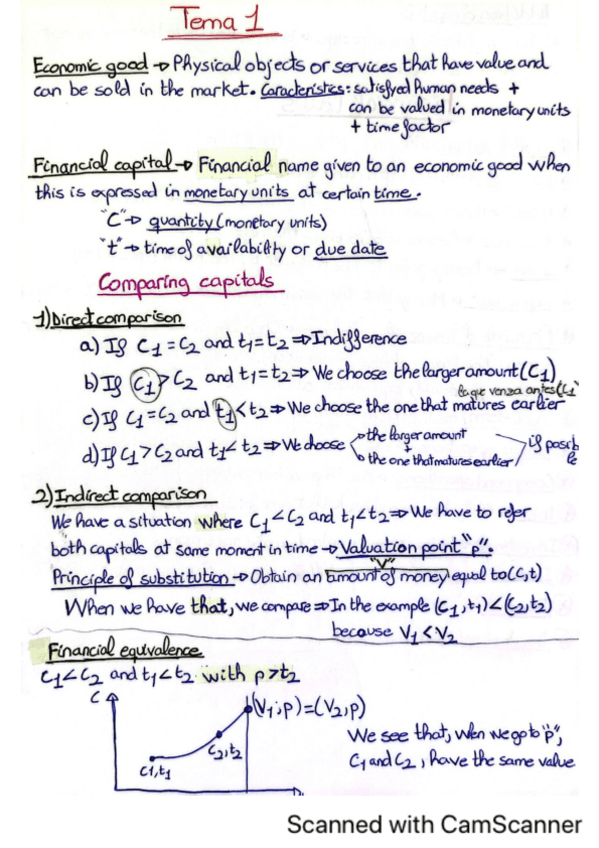 Tema 1
Economic good → Physical objects or services that have value and
can be sold in the market. Caracteristics: satisfyed human needs +
can be valued in monetary units
+ time factor
Financial capital → Financial name given to an economic good when
this is expressed in monetary units at certain time.
"C" → quantity (monetary units)
"t" → time of availability or due date
Comparing capitals
1) Direct comparison
a) If C1 = C2 and t1 = t2 ⇒ Indifference
b) If C1 > C2 and t1 = t2 ⇒ We choose the larger amount (C1)
la que venza antes (C1
c) If C1 = C2 and t1 < t2 ⇒ We choose the one that matures earlier
d) If C1 > C2 and t1 < t2 ⇒ We choose → the larger amount + → the one that matures earlier if posib le
2) Indirect comparison
We have a situation where C1 < C2 and t1 < t2 ⇒ We have to refer
both capitals at same moment in time → Valuation point "p".
"V"
Principle of substitution → Obtain an amount of money equal to (C,t)
When we have that, we compare ⇒ In the example (C1,t1) < (C2,t2)
because V1 < V2
Financial equivalence
C1 < C2 and t1 < t2 with p > t2
C
(V1;p) = (V2,p)
C2,t2
C1,t1
We see that, when we go to "p",
C1 and C2, have the same value
Scanned with CamScanner